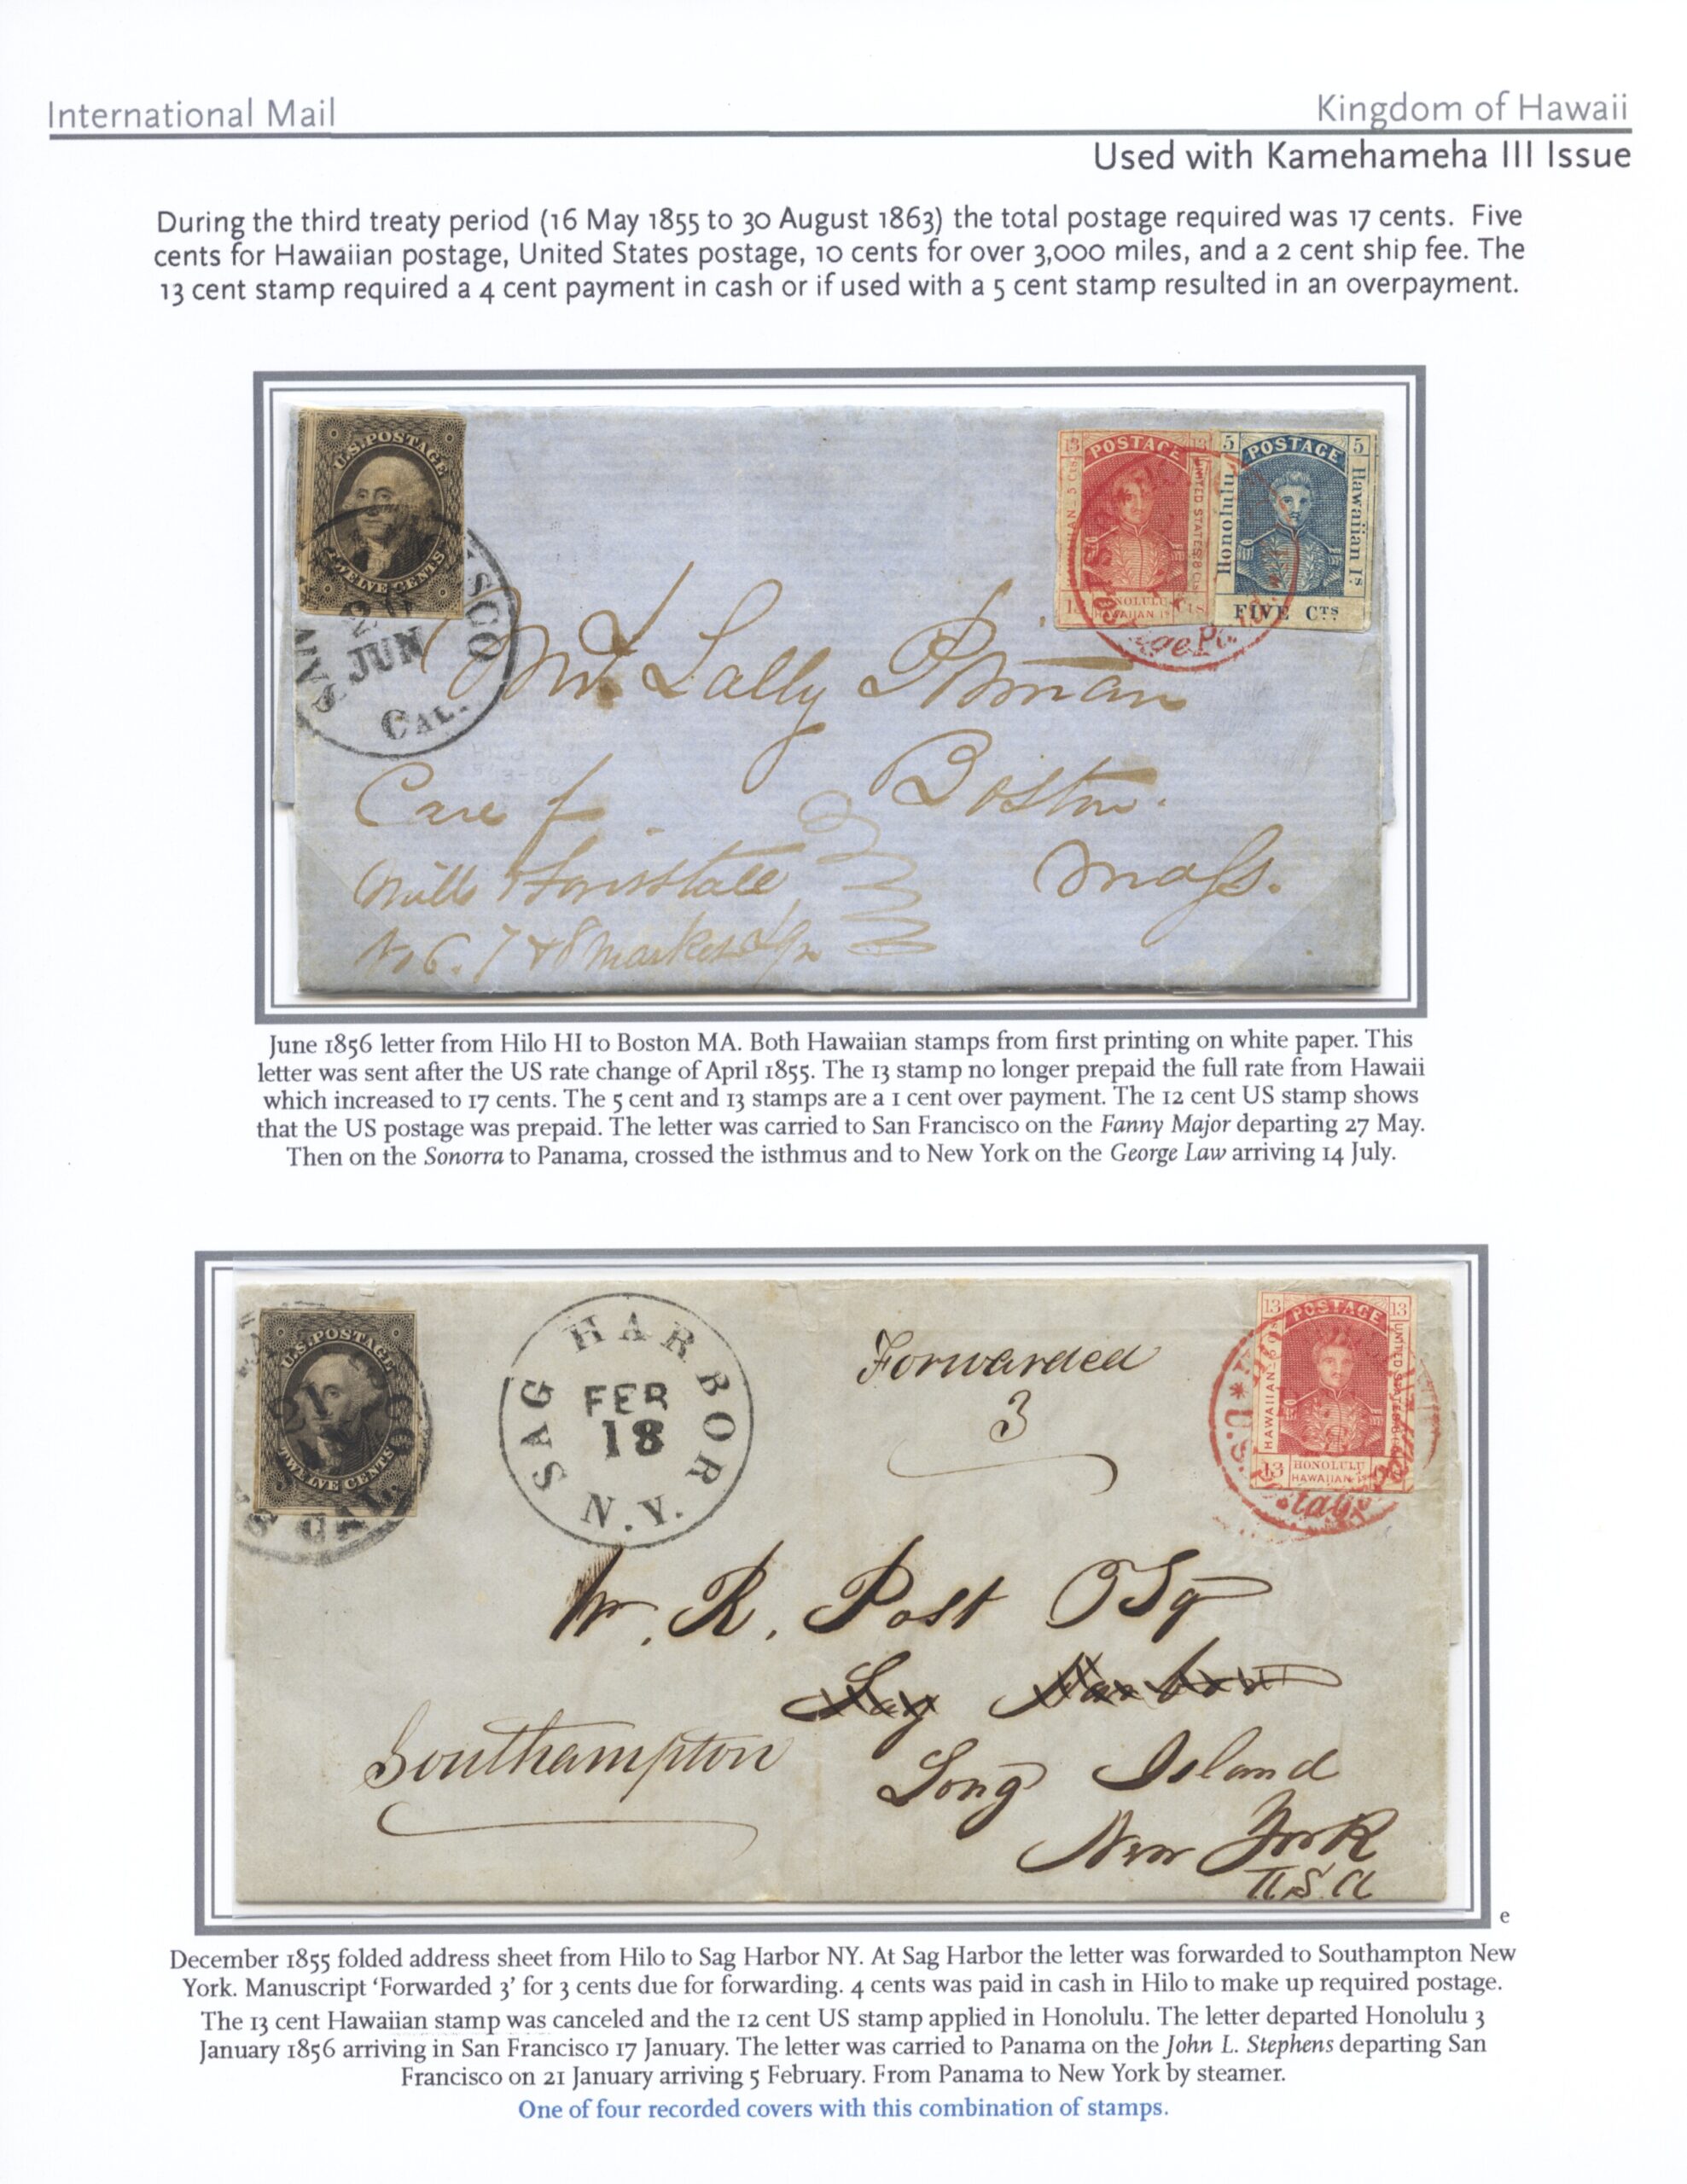 International Mail
Kingdom of Hawaii
Used with Kamehameha III Issue
During the third treaty period (16 May 1855 to 30 August 1863) the total postage required was 17 cents. Five
cents for Hawaiian postage, United States postage, 10 cents for over 3,000 miles, and a 2 cent ship fee. The
13 cent stamp required a 4 cent payment in cash or if used with a 5 cent stamp resulted in an overpayment.
U.S. POSTAGE
TWELVE CENTS
SCO
JUN
CAL.
13 POSTAGE 13
UNITED STATES 8 Cts
HONOLULU
HAWAIIAN Is
5 POSTAGE 5
Honolulu
Hawaiian Is.
FIVE Cts
Lally
Boston.
Care of
Mass.
No 6. 7 & 8 Market
June 1856 letter from Hilo HI to Boston MA. Both Hawaiian stamps from first printing on white paper. This
letter was sent after the US rate change of April 1855. The 13 stamp no longer prepaid the full rate from Hawaii
which increased to 17 cents. The 5 cent and 13 stamps are a 1 cent over payment. The 12 cent US stamp shows
that the US postage was prepaid. The letter was carried to San Francisco on the Fanny Major departing 27 May.
Then on the Sonorra to Panama, crossed the isthmus and to New York on the George Law arriving 14 July.
U.S. POSTAGE
TWELVE CENTS
CAL.
SAG HARBOR
FEB
18
N.Y.
Forwarded
3
13 POSTAGE 13
HAWAIIAN
UNITED STATES
13 HONOLULU
HAWAIIAN Is
U.S.
W. R. Post Esq
Sag Harbor
Southampton
Long Island
New York
U.S.A
e
December 1855 folded address sheet from Hilo to Sag Harbor NY. At Sag Harbor the letter was forwarded to Southampton New
York. Manuscript ‘Forwarded 3’ for 3 cents due for forwarding. 4 cents was paid in cash in Hilo to make up required postage.
The 13 cent Hawaiian stamp was canceled and the 12 cent US stamp applied in Honolulu. The letter departed Honolulu 3
January 1856 arriving in San Francisco 17 January. The letter was carried to Panama on the John L. Stephens departing San
Francisco on 21 January arriving 5 February. From Panama to New York by steamer.
One of four recorded covers with this combination of stamps.